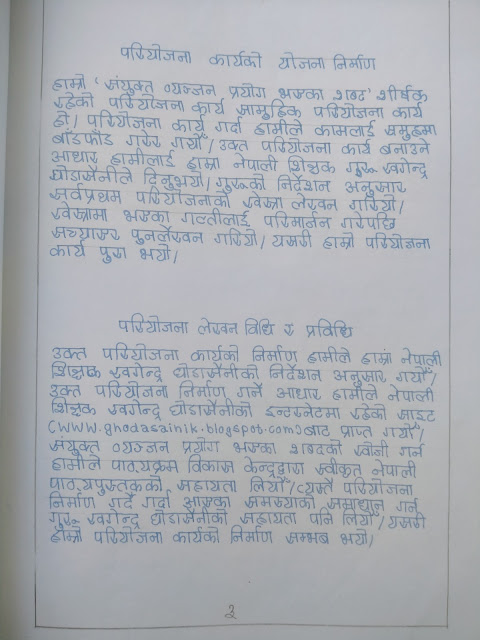 परियोजना कार्यको योजना निर्माण
हाम्रो 'संयुक्त व्यञ्जन प्रयोग भएका शब्द' शीर्षक
रहेको परियोजना कार्य सामुहिक परियोजना कार्य
हो। परियोजना कार्य गर्दा हामीले कामलाई समुहमा
बाँडफाँड गरेर गर्यौं। उक्त परियोजना कार्य बनाउने
आधार हामीलाई हाम्रा नेपाली शिक्षक गुरू खगेन्द्र
घोडासैनीले दिनुभयो। गुरूको निर्देशन अनुसार
सर्वप्रथम परियोजनाको खेस्रा लेखन गरियो।
खेस्रामा भएका गल्तीलाई परिमार्जन गरेपछि
सच्याएर पुनर्लेखन गरियो। यसरी हाम्रो परियोजना
कार्य पुरा भयो।
परियोजना लेखन विधि र प्रविधि
उक्त परियोजना कार्यको निर्माण हामीले हाम्रा नेपाली
शिक्षक खगेन्द्र घोडासैनीको निर्देशन अनुसार गर्यौं।
उक्त परियोजना निर्माण गर्ने आधार हामीले नेपाली
शिक्षक खगेन्द्र घोडासैनीको इन्टरनेटमा रहेको साइट
(www.ghodasainik.blogspot.com) बाट प्राप्त गर्यौं।
संयुक्त व्यञ्जन प्रयोग भएका शब्दको खोजी गर्न
हामीले पाठ्यक्रम विकास केन्द्रद्वारा स्वीकृत नेपाली
पाठ्यपुस्तकको सहायता लियौँ। त्यस्तै परियोजना
निर्माण गर्दै गर्दा आएका समस्याको समाधान गर्न
गुरू खगेन्द्र घोडासैनीको सहायता पनि लियौँ। यसरी
हाम्रो परियोजना कार्यको निर्माण सम्भब भयो।
३